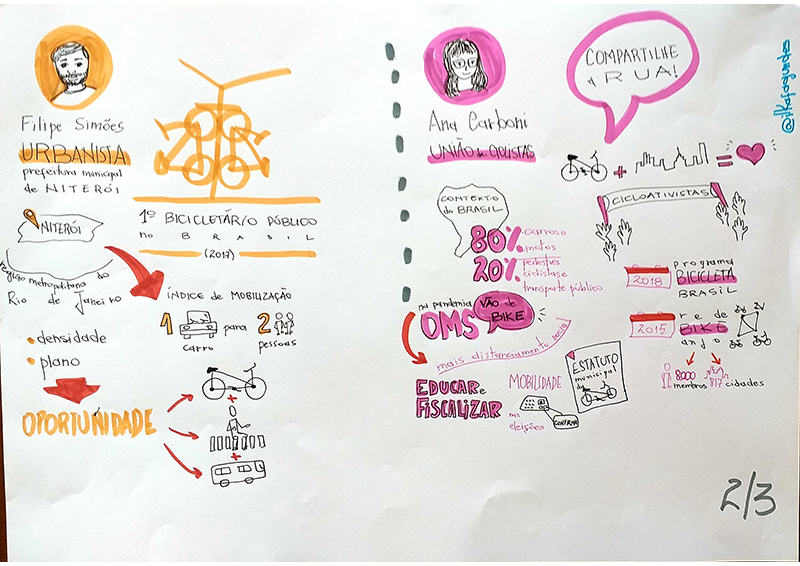 Filipe Simões
URBANISTA
prefeitura municipal
de NITERÓI
1º BICICLETÁRIO PÚBLICO
no BRASIL
(2017)
NITERÓI
região metropolitana do
Rio de Janeiro
• densidade
• plano
OPORTUNIDADE
ÍNDICE DE MOBILIZAÇÃO
1 carro para 2 pessoas
+
+
Ana Carboni
UNIÃO de CICLISTAS
COMPARTILHE
A RUA!
@ilkafargundes
+ =
CICLOATIVISTAS
CONTEXTO
do BRASIL
80% carros e
motos
20% pedestres
ciclistas e
transporte público
na pandemia
OMS
VÃO de
BIKE
mais distanciamento social
EDUCAR e
FISCALIZAR
MOBILIDADE
nas
eleições
CONFIRMA
ESTATUTO
municipal
da
2018
programa
BICICLETA
BRASIL
2015
rede
BIKE
anjo
8000
membros
817 cidades
2/3